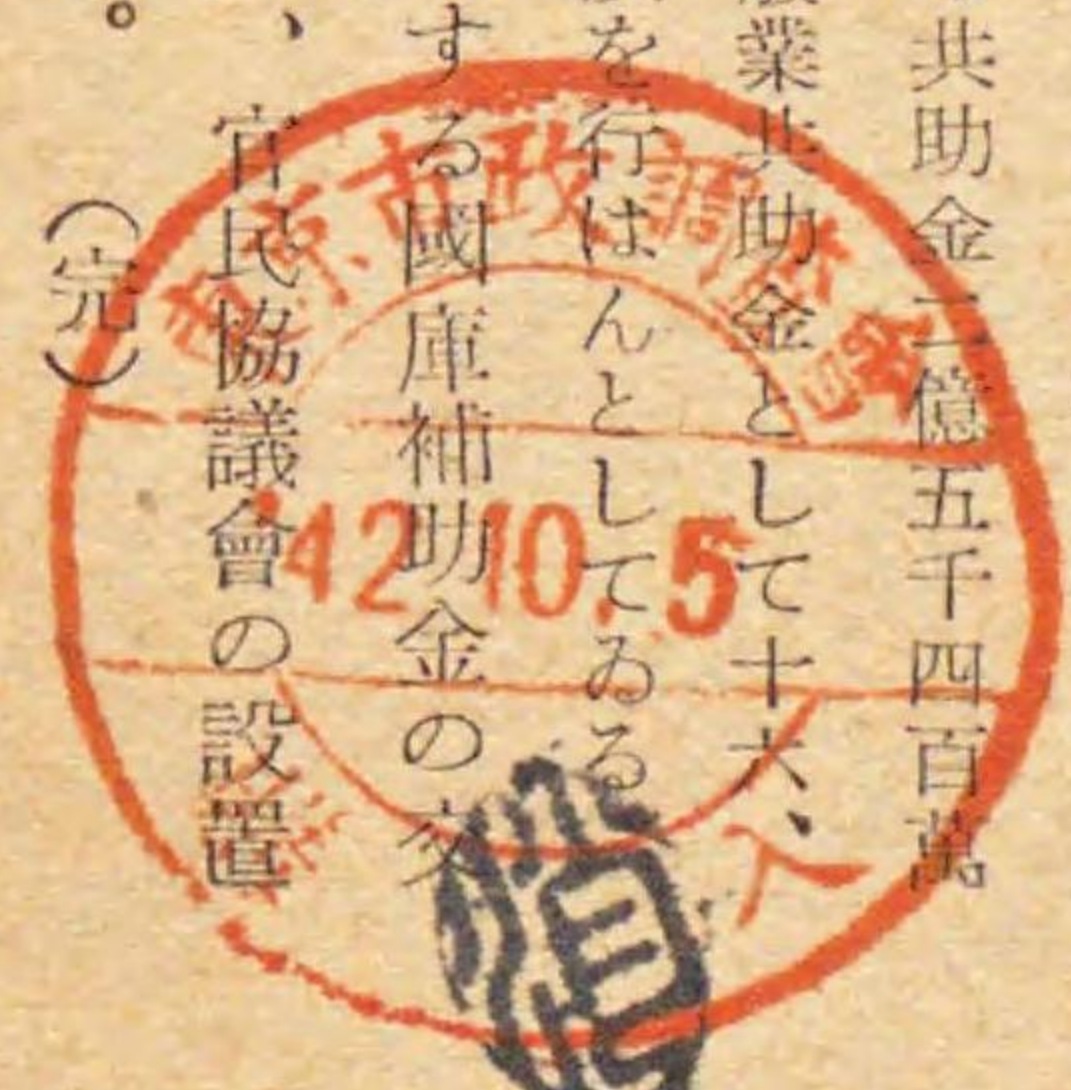 共助金二億五千四百萬
業共助金として十六、
を行はんとしてゐる
する國庫補助金の交
、官民協議會の設置
。
（完）
東京市政調査會
'42.10.5
入